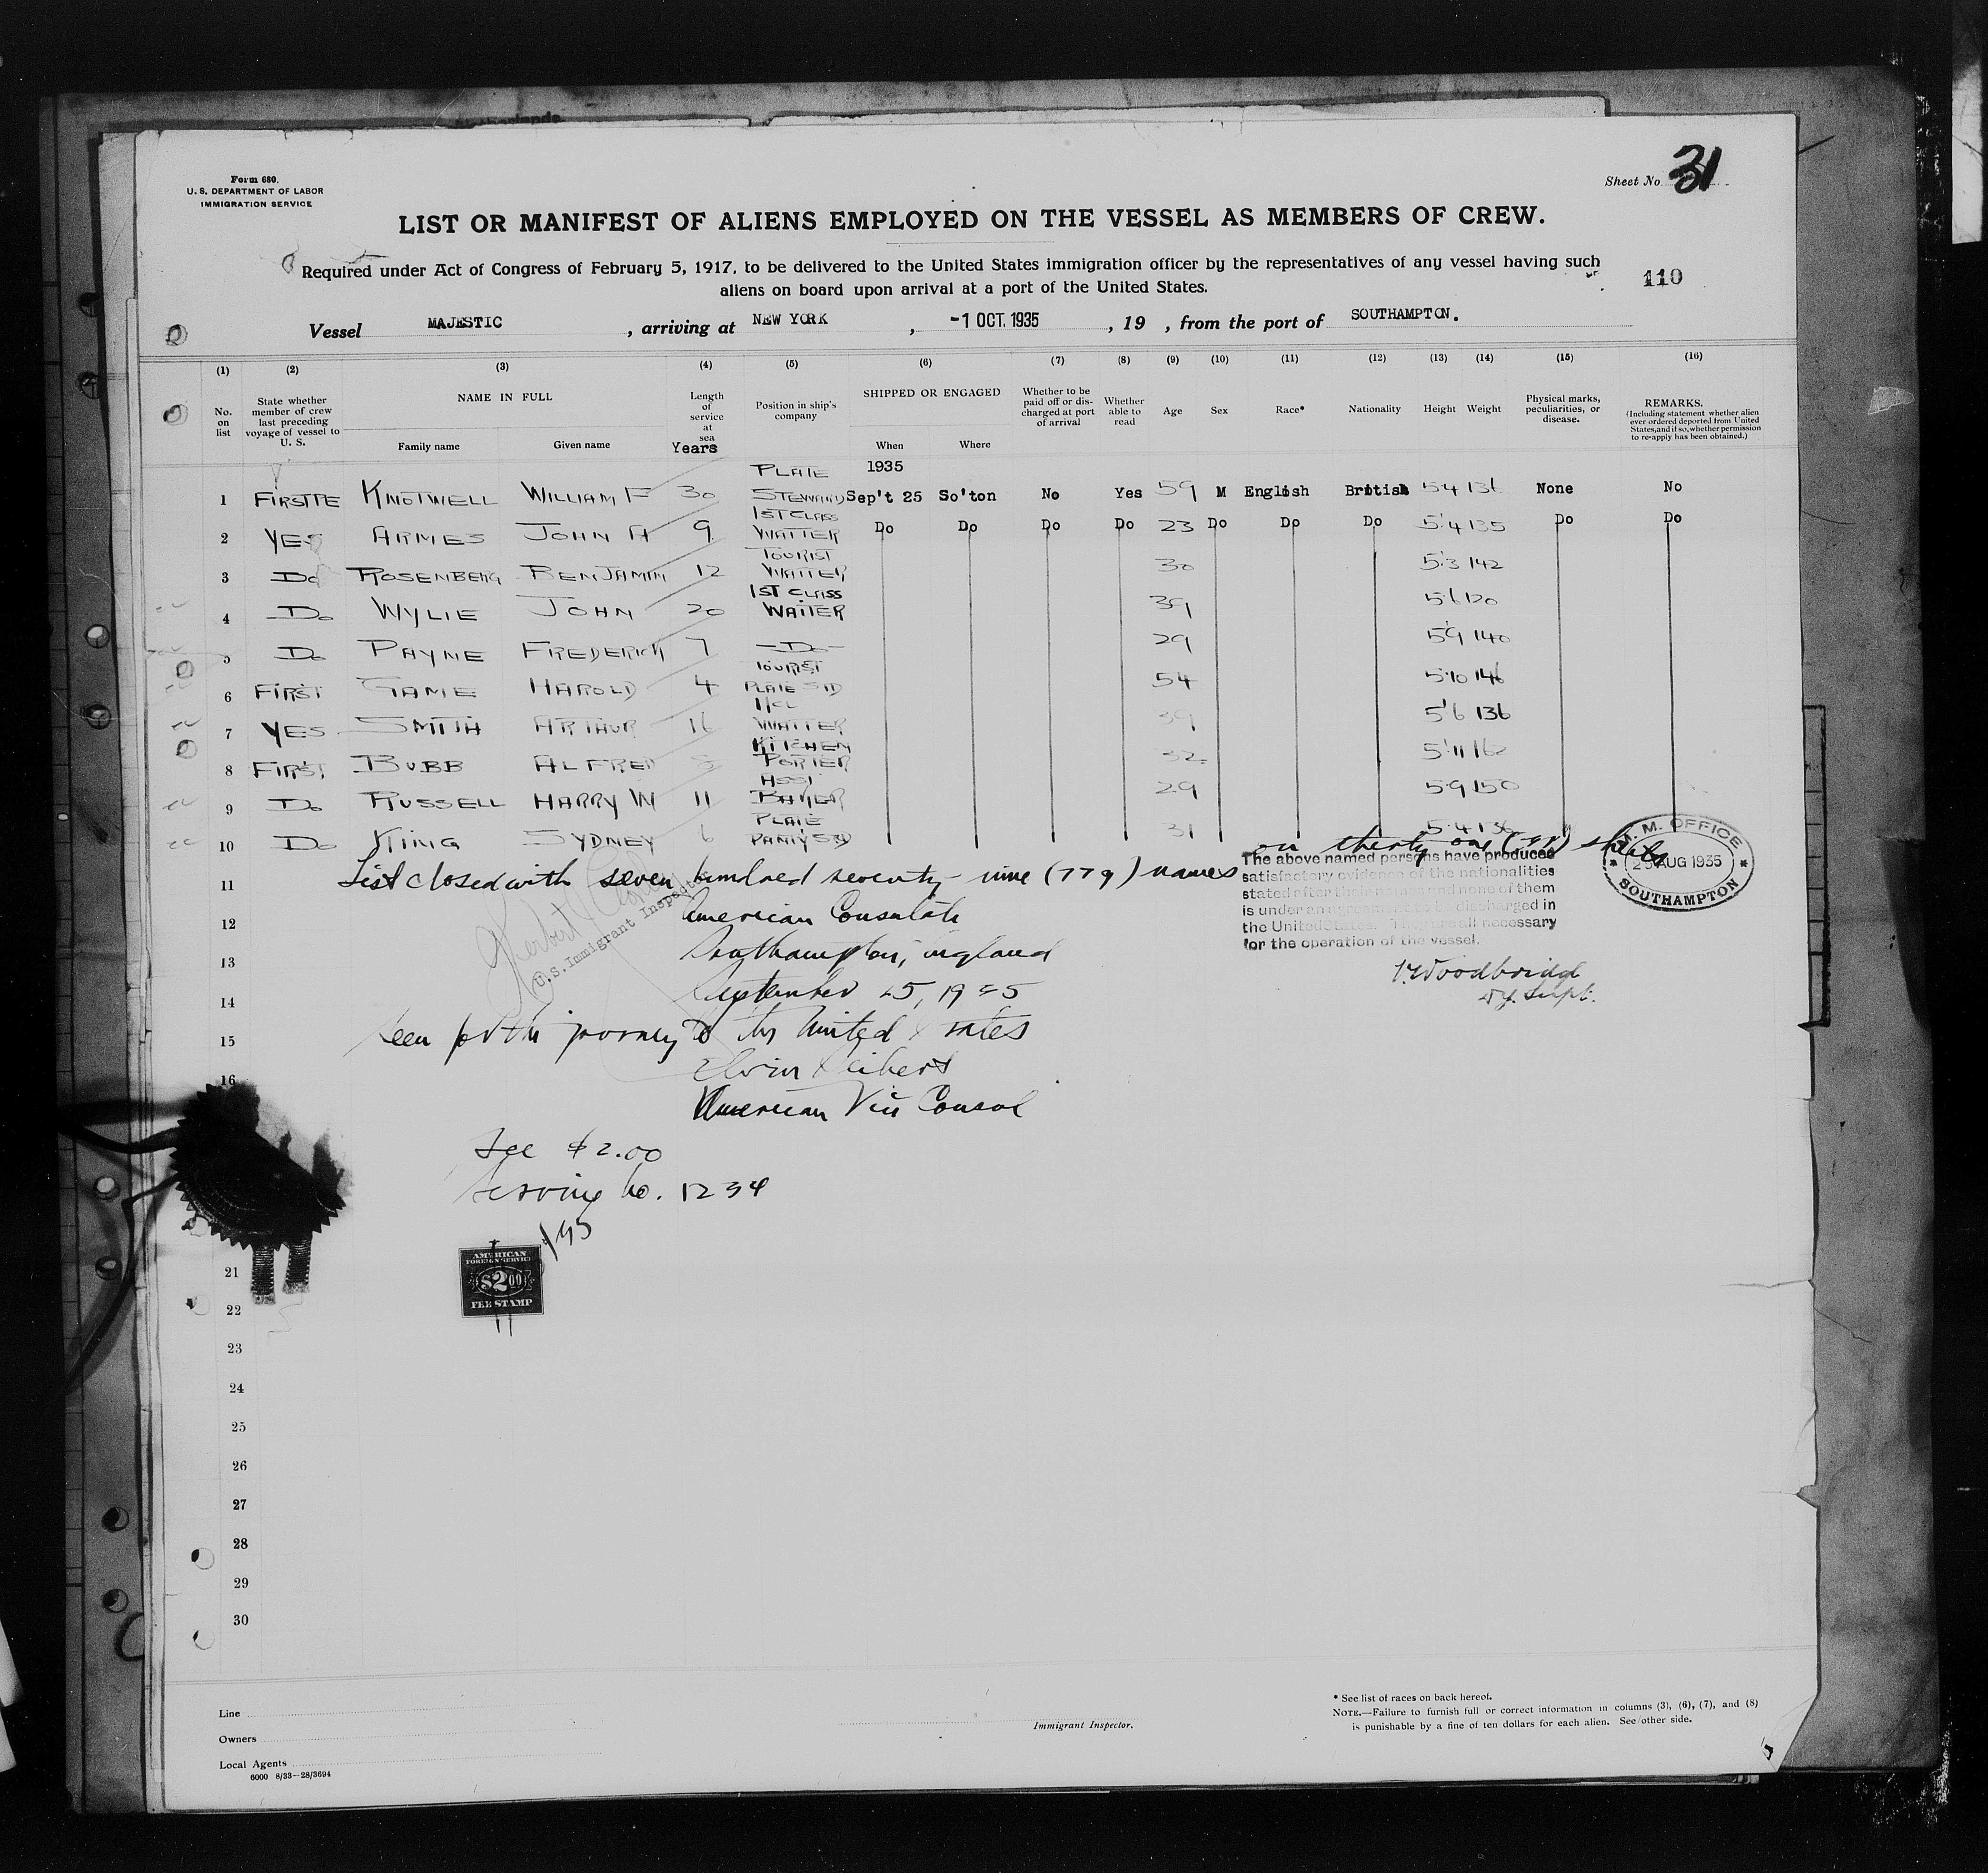 Form 680.
U. S. DEPARTMENT OF LABOR
IMMIGRATION SERVICE
Sheet No. 31
LIST OR MANIFEST OF ALIENS EMPLOYED ON THE VESSEL AS MEMBERS OF CREW.
Required under Act of Congress of February 5, 1917, to be delivered to the United States immigration officer by the representatives of any vessel having such
aliens on board upon arrival at a port of the United States.
110
Vessel MAJESTIC, arriving at NEW YORK, -1 OCT. 1935, 19 , from the port of SOUTHAMPTON.
(1) (2) (3) (4) (5) (6) (7) (8) (9) (10) (11) (12) (13) (14) (15) (16)
No. on list
State whether member of crew last preceding voyage of vessel to U. S.
NAME IN FULL
Family name Given name
Length of service at sea
Years
Position in ship's company
SHIPPED OR ENGAGED
When Where
Whether to be paid off or discharged at port of arrival
Whether able to read
Age Sex Race* Nationality Height Weight
Physical marks, peculiarities, or disease.
REMARKS.
(Including statement whether alien ever ordered deported from United States, and if so, whether permission to re-apply has been obtained.)
PLATE 1935
1 KNOTWELL WILLIAM F 30 STEWARD Sep't 25 So'ton No Yes 59 M English British 5'4 136 None No
1ST CLASS
2 YES ARMES JOHN A 9 WAITER Do Do Do Do 23 Do Do Do 5'4 135 Do Do
TOURIST
3 Do ROSENBERG BENJAMIN 12 WAITER 30 5'3 142
1ST CLASS
4 Do WYLIE JOHN 20 WAITER 39 5'6 120
5 Do PAYNE FREDERICK 7 Do 29 5'9 140
TOURIST
6 FIRST GAME HAROLD 4 PLATE STD 54 5'10 146
1/CL
7 YES SMITH ARTHUR 16 WAITER 39 5'6 136
KITCHEN
8 FIRST BUBB ALFRED PORTER 32 5'11
ASST
9 Do RUSSELL HARRY W 11 BAKER 29 5'9 150
PLATE
10 Do KING SYDNEY 6 31 5'4 136
11 List closed with seven hundred seventy-nine (779) names on thirty one (31) sheets
12 American Consulate
13 Southampton, England
14 September 25, 1935
15 Seen for the journey to the United States
16
American Vice Consul
Fee $2.00
Service No. 1234
AMERICAN
FOREIGN SERVICE
$2.00
FEE STAMP
Herbert
U.S. Immigrant Inspector
The above named persons have produced
satisfactory evidence of the nationalities
stated after their names and none of them
is under an agreement to be discharged in
the United States. They are all necessary
for the operation of the vessel.
Woodbridge
Supt.
M. M. OFFICE
AUG 1935
SOUTHAMPTON
21
22
23
24
25
26
27
28
29
30
Line
Owners
Local Agents
6000 8/33--28/3694
Immigrant Inspector.
* See list of races on back hereof.
NOTE.—Failure to furnish full or correct information in columns (3), (6), (7), and (8)
is punishable by a fine of ten dollars for each alien. See other side.